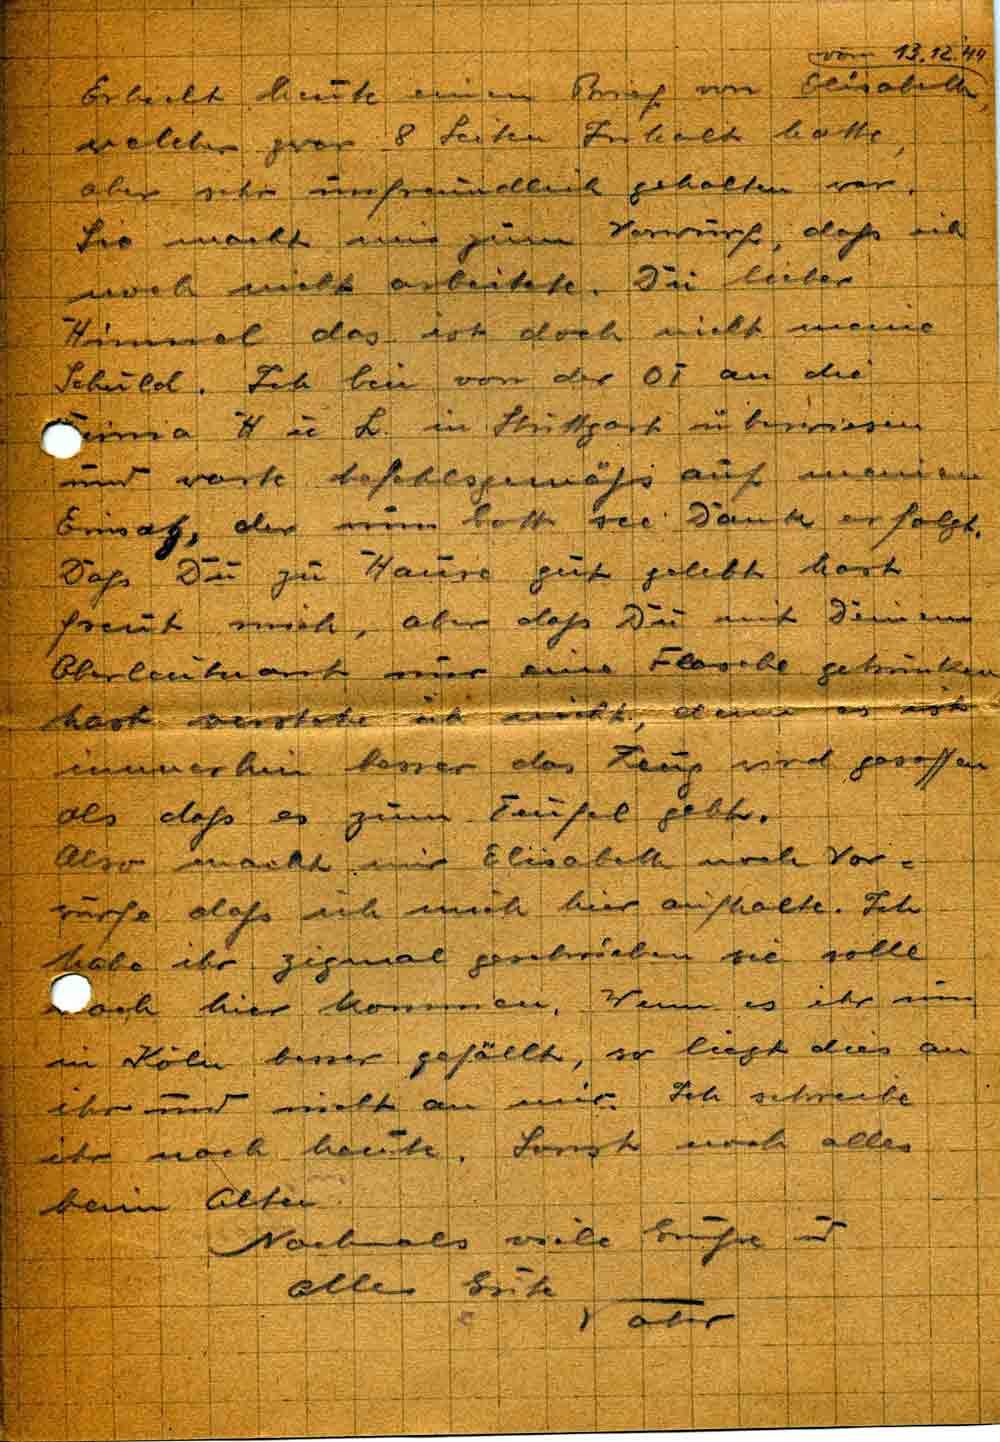 vom 13.12.44
Erhielt heute einen Brief von Elisabeth,
welcher zwar 8 Seiten Inhalt hatte,
aber sehr unfreundlich gehalten war.
Sie macht mir zum Vorwurf, daß ich
noch nicht arbeitete. Du lieber
Himmel das ist doch nicht meine
Schuld. Ich bin von der OT an die
Firma H u L. in Stuttgart überwiesen
und warte befehlsgemäß auf meinen
Einsatz, der nun Gott sei Dank erfolgt.
Daß Du zu Hause gut gelebt hast
freut mich, aber daß Du mit Deinem
Oberleutnant nur eine Flasche getrunken
hast verstehe ich nicht, denn es ist
immerhin besser das Zeug wird gesoffen
als daß es zum Teufel geht.
Also macht mir Elisabeth noch Vor=
würfe daß ich mich hier aufhalte. Ich
habe ihr zigmal geschrieben sie solle
nach hier kommen. Wenn es ihr nun
in Köln besser gefällt, so liegt dies an
ihr und nicht an mir. Ich schreibe
ihr noch heute. Sonst noch alles
beim Alten.
Nochmals viele Grüße u
alles Gute
Vater